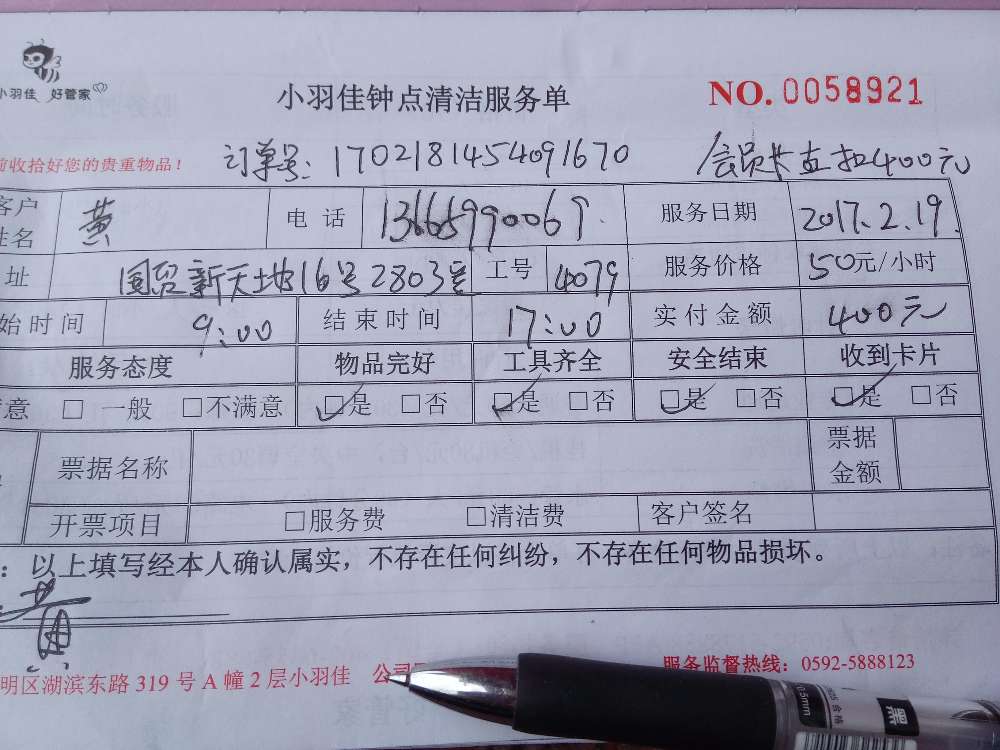 小羽佳 好管家
小羽佳钟点清洁服务单 NO. 0058921
前收拾好您的贵重物品! 订单号: 1702181454091670 会员卡直扣400元
客户姓名 黄 电话 13665990069 服务日期 2017.2.19
址 国贸新天地16号2803室 工号 4079 服务价格 50元/小时
始时间 9:00 结束时间 17:00 实付金额 400元
服务态度 物品完好 工具齐全 安全结束 收到卡片
意 □ 一般 □不满意 □是 □否 □是 □否 □是 □否 □是 □否
票据名称 票据金额
开票项目 □服务费 □清洁费 客户签名
: 以上填写经本人确认属实，不存在任何纠纷，不存在任何物品损坏。
黄
明区湖滨东路 319 号 A 幢 2 层小羽佳 公司 服务监督热线: 0592-5888123
0.5mm 合格 黑